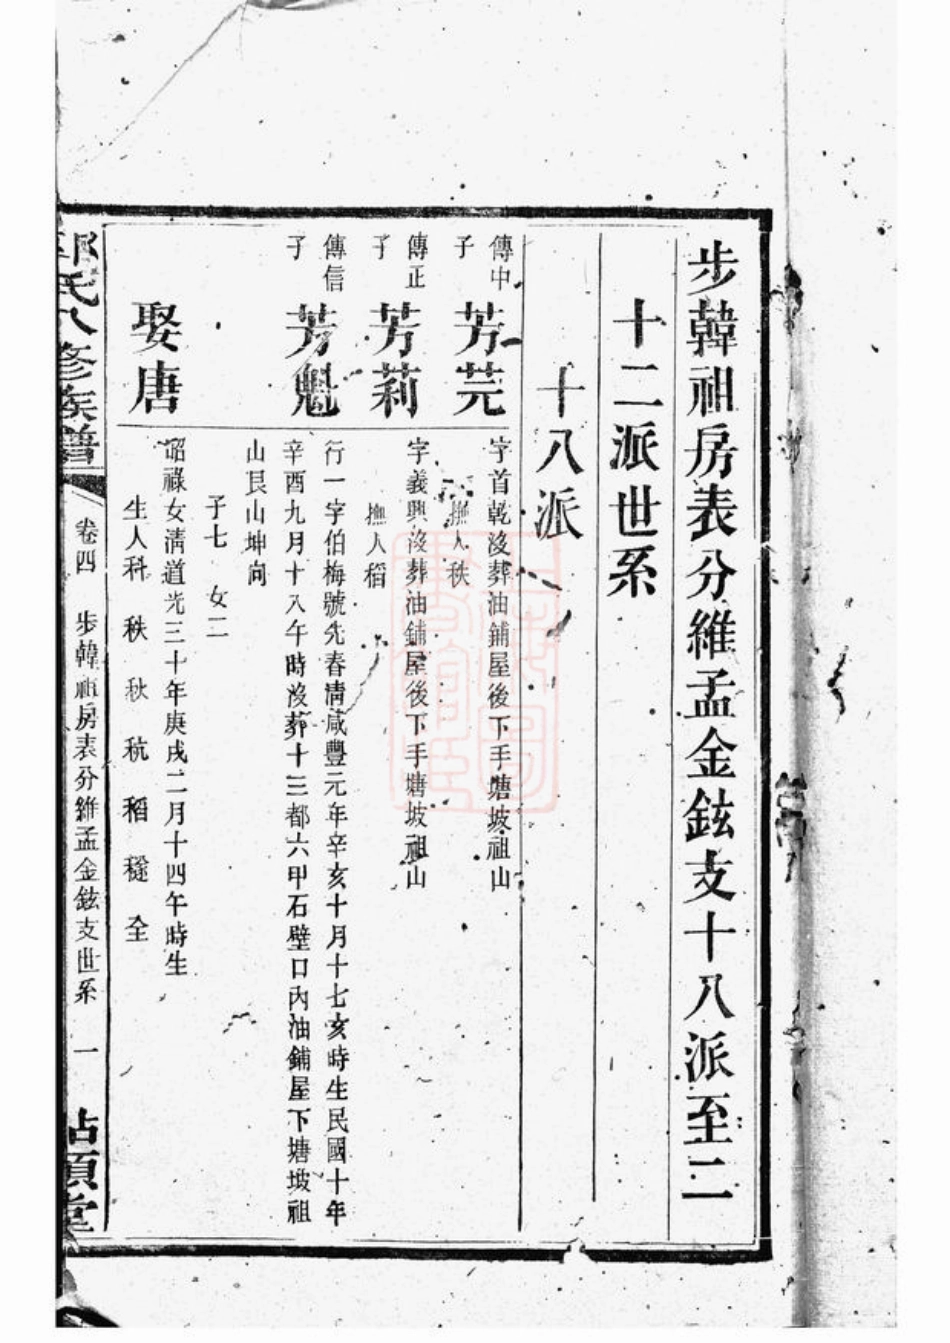 步韓祖房表分維孟金鉉支十八派至二
十二派世系
十八派
傳中
子
芳芫
字首乾沒葬油鋪屋後下手塘坡祖山
撫人秩
傳正
子
芳莉
字義興沒葬油鋪屋後下手塘坡祖山
撫人稻
傳信
子
芳魁
行一字伯梅號先春清咸豐元年辛亥十月十七亥時生民國十年
辛酉九月十八午時沒葬十三都六甲石壁口內油鋪屋下塘坡祖
山艮山坤向
子七 女二
娶唐
昭祿女清道光三十年庚戌二月十四午時生
生人科 秩 秋 秔 稻 穟 全
氏八修族譜
卷四 步韓祖房表分維孟金鉉支世系 一